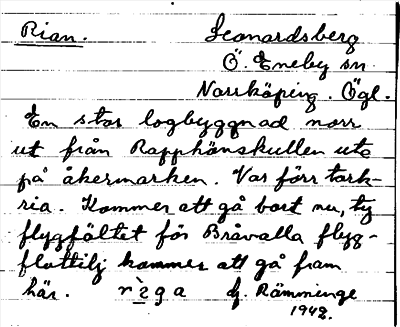 Rian. Leonardsberg
Ö. Eneby sn
Norrköping. Ögl.
En stor logbyggnad norr
ut från Rapphönskullen ute
på åkermarken. Var förr tork-
ria. Kommer att gå bort nu, ty
flygfältet för Bråvalla flyg-
flottilj kommer att gå fram
här. riga dj. Rämninge
1942.